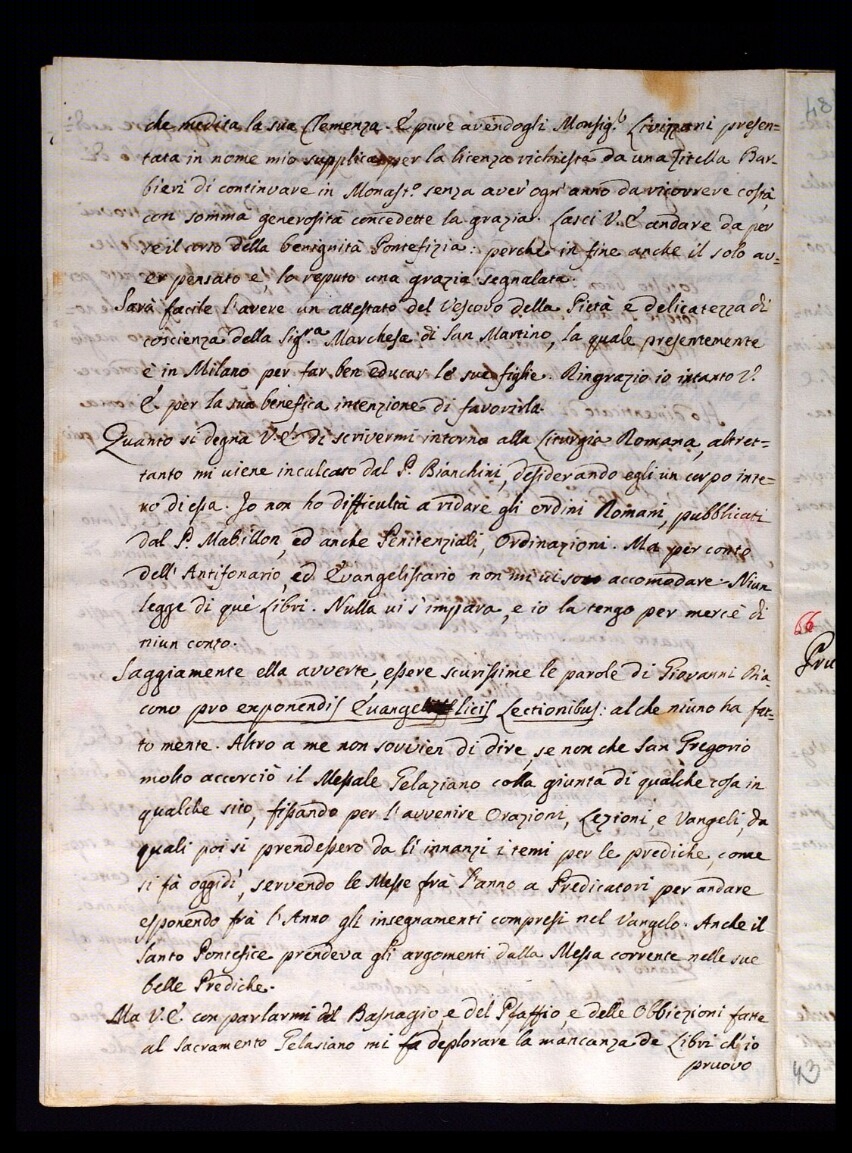 che medita la sua Clemenza. E pure avendogli Monsig.r Livizzani presen=
tata in nome mio supplica per la licenza richiesta da una Zitella Bar=
bieri di continuare in Monast.o senza aver ogn'anno da ricorrere costà,
con somma generosità concedette la grazia. Lasci V.E. andare da per
se il corso della benignità Pontefizia: perchè in fine anche il solo av=
er pensato e, lo reputo una grazia segnalata.
Sarà facile l'avere un attestato del Vescovo della Pietà e delicatezza di
coscienza della Sig.ra Marchesa di San Martino, la quale presentemente
è in Milano per far ben educar le sue figlie. Ringrazio io intanto V.
E. per la sua benefica intenzione di favorirla.
Quanto si degna V.E. di scrivermi intorno alla Liturgia Romana, altret=
tanto mi viene inculcato dal P. Bianchini, desiderando egli un corpo inte=
ro di essa. Io non ho difficultà a ridare gli ordini Romani, pubblicati
dal P. Mabillon, ed anche Penitenziali, Ordinazioni. Ma per conto
dell'Antifonario, ed Evangelistario non mi vi so accomodare. Niun
legge di què Libri. Nulla vi s'impara, e io la tengo per mercè di
niun conto.
Saggiamente ella avverte, essere scurissime le parole di Giovanni Dia=
cono pro exponendis Evangelicis Lectionibus: al che niuno ha fat=
to mente. Altro a me non sovvien di dire, se non che San Gregorio
molto accorciò il Messale Gelaziano colla giunta di qualche cosa in
qualche sito, fissando per l'avvenire Orazioni, Lezioni, e Vangeli, da
quali poi si prendessero da lì innanzi i temi per le prediche, come
si fà oggidì, servendo le Messe frà l'anno a Predicatori per andare
esponendo frà l'Anno gli insegnamenti compresi nel Vangelo. Anche il
Santo Pontefice prendeva gli argomenti dalla Messa corrente nelle sue
belle Prediche.
Ma V.E. con parlarmi del Basnagio, e del Pfaffio, e delle Obbiezioni fatte
al Sacramento Gelasiano mi fa deplorare la mancanza de Libri ch'io
pruovo
66
43